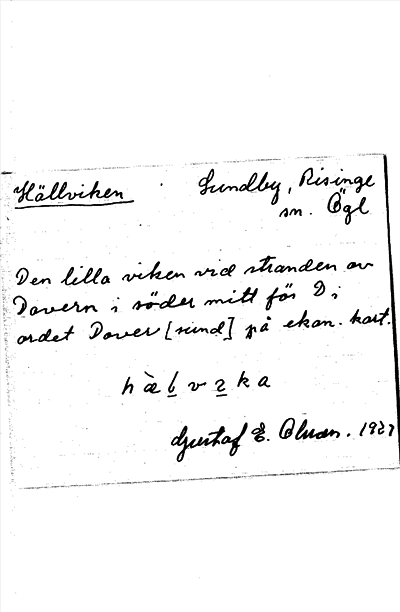 Hällviken
Sundby, Risinge
sn. Ögl
Den lilla viken vid stranden av
Dovern i söder mitt för D i
ordet Dover [sund] på ekon. kart.
Gustaf E. 192